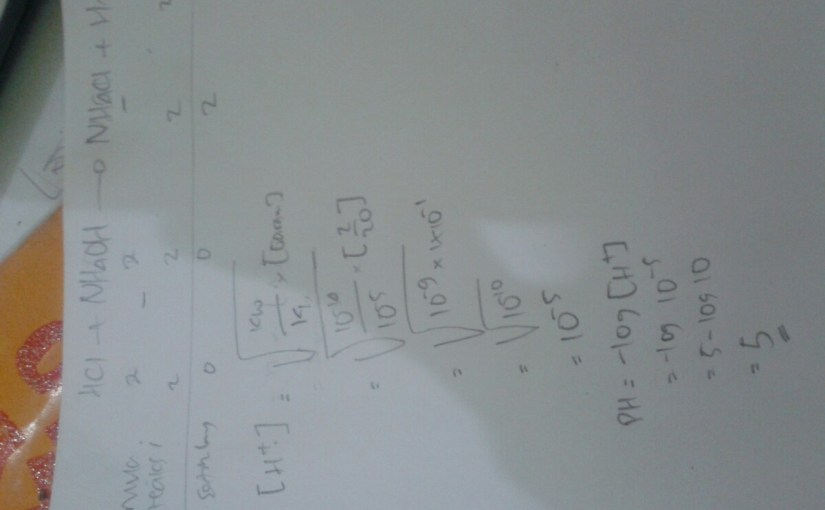 HCl + NH4OH → NH4Cl + H
mula: 2 2 -
reaksi 2 2 2 2
setimbang 0 0 2
[H+] = √Kw/Kb × [Garam]
= √10-14/10-5 × [2/20]
= √10-9 × 1×10-1
= √10-10
= 10-5
PH = -log [H+]
= -log 10-5
= 5 - log 10
= 5